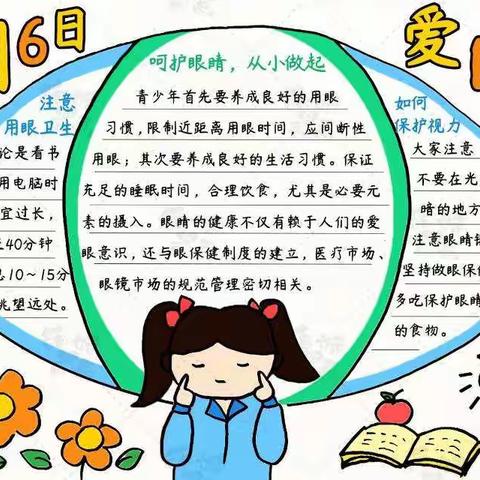 6日
爱
注意
用眼卫生
论是看书
用电脑时
宜过长，
40分钟
息10～15分
眺望远处。
呵护眼睛，从小做起
青少年首先要养成良好的用眼
习惯，限制近距离用眼时间，应间断性
用眼；其次要养成良好的生活习惯。保证
充足的睡眠时间，合理饮食，尤其是必要元
素的摄入。眼睛的健康不仅有赖于人们的爱
眼意识，还与眼保健制度的建立，医疗市场、
眼镜市场的规范管理密切相关。
如何
保护视力
大家注意
不要在光
暗的地方
注意眼睛
坚持做眼保
多吃保护眼睛
的食物。